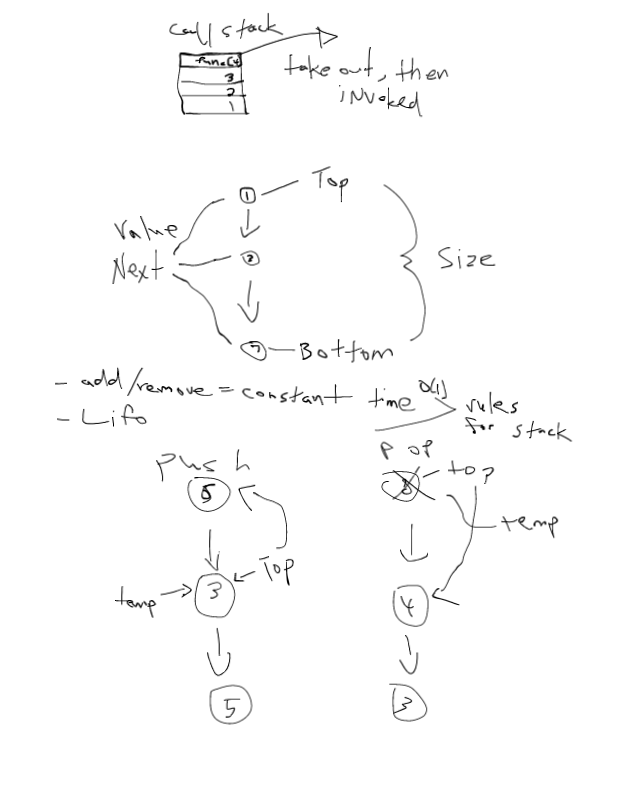 call stack
3
2
1
take out, then
invoked
1
Top
Value
Next
2
Size
Bottom
- add/remove = constant time O(1)
- Lifo
rules
for stack
push
5
Top
temp
3
5
pop
top
temp
4
3